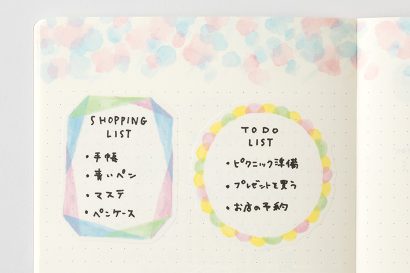 SHOPPING
LIST
・手帳
・青いペン
・マステ
・ペンケース
TO DO
LIST
・ピクニック準備
・プレゼントを買う
・お店の予約